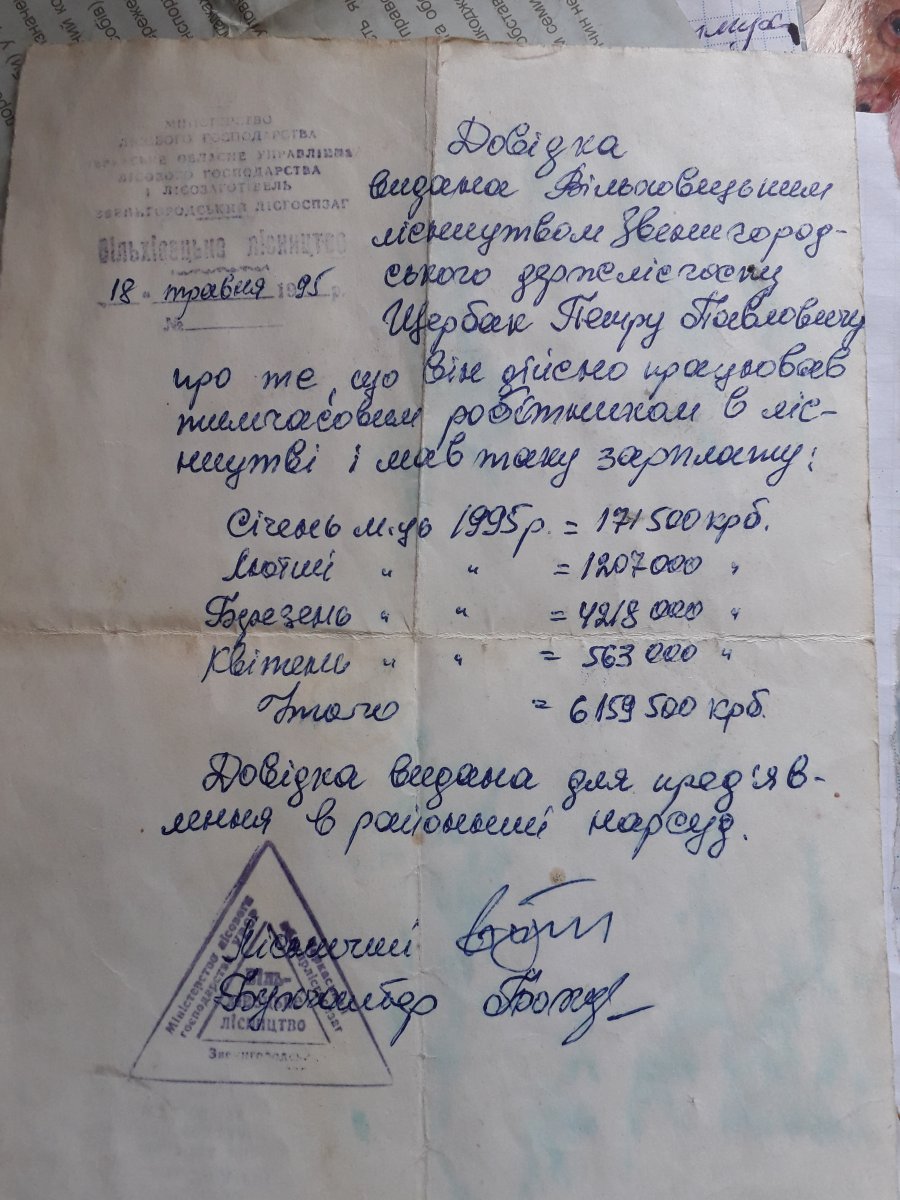 МІНІСТЕРСТВО
ЛІСОВОГО ГОСПОДАРСТВА
ОБЛАСНЕ УПРАВЛІННЯ
ЛІСОВОГО ГОСПОДАРСТВА
І ЛІСОЗАГОТІВЕЛЬ
ЗВЕНИГОРОДСЬКИЙ ЛІСГОСПЗАГ
Вільхівецьке лісництво
18 " травня 1995 р.
№
Довідка
видана Вільховецьким
лісництвом Звенигород-
ського держлісгоспу
Щербак Петру Павловичу
про те, що він дійсно працював
тимчасовим робітником в ліс-
ництві і мав таку зарплату:
Січень м-ць 1995р. = 171500 крб.
Лютий " " = 1207000 "
Березень " " = 4218000 "
Квітень " " = 563000 "
Итого = 6159500 крб.
Довідка видана для пред'яв-
лення в районний нарсуд.
Лісничий
Бухгалтер
Міністерство лісового
господарства УРСР
ЛІСНИЦТВО